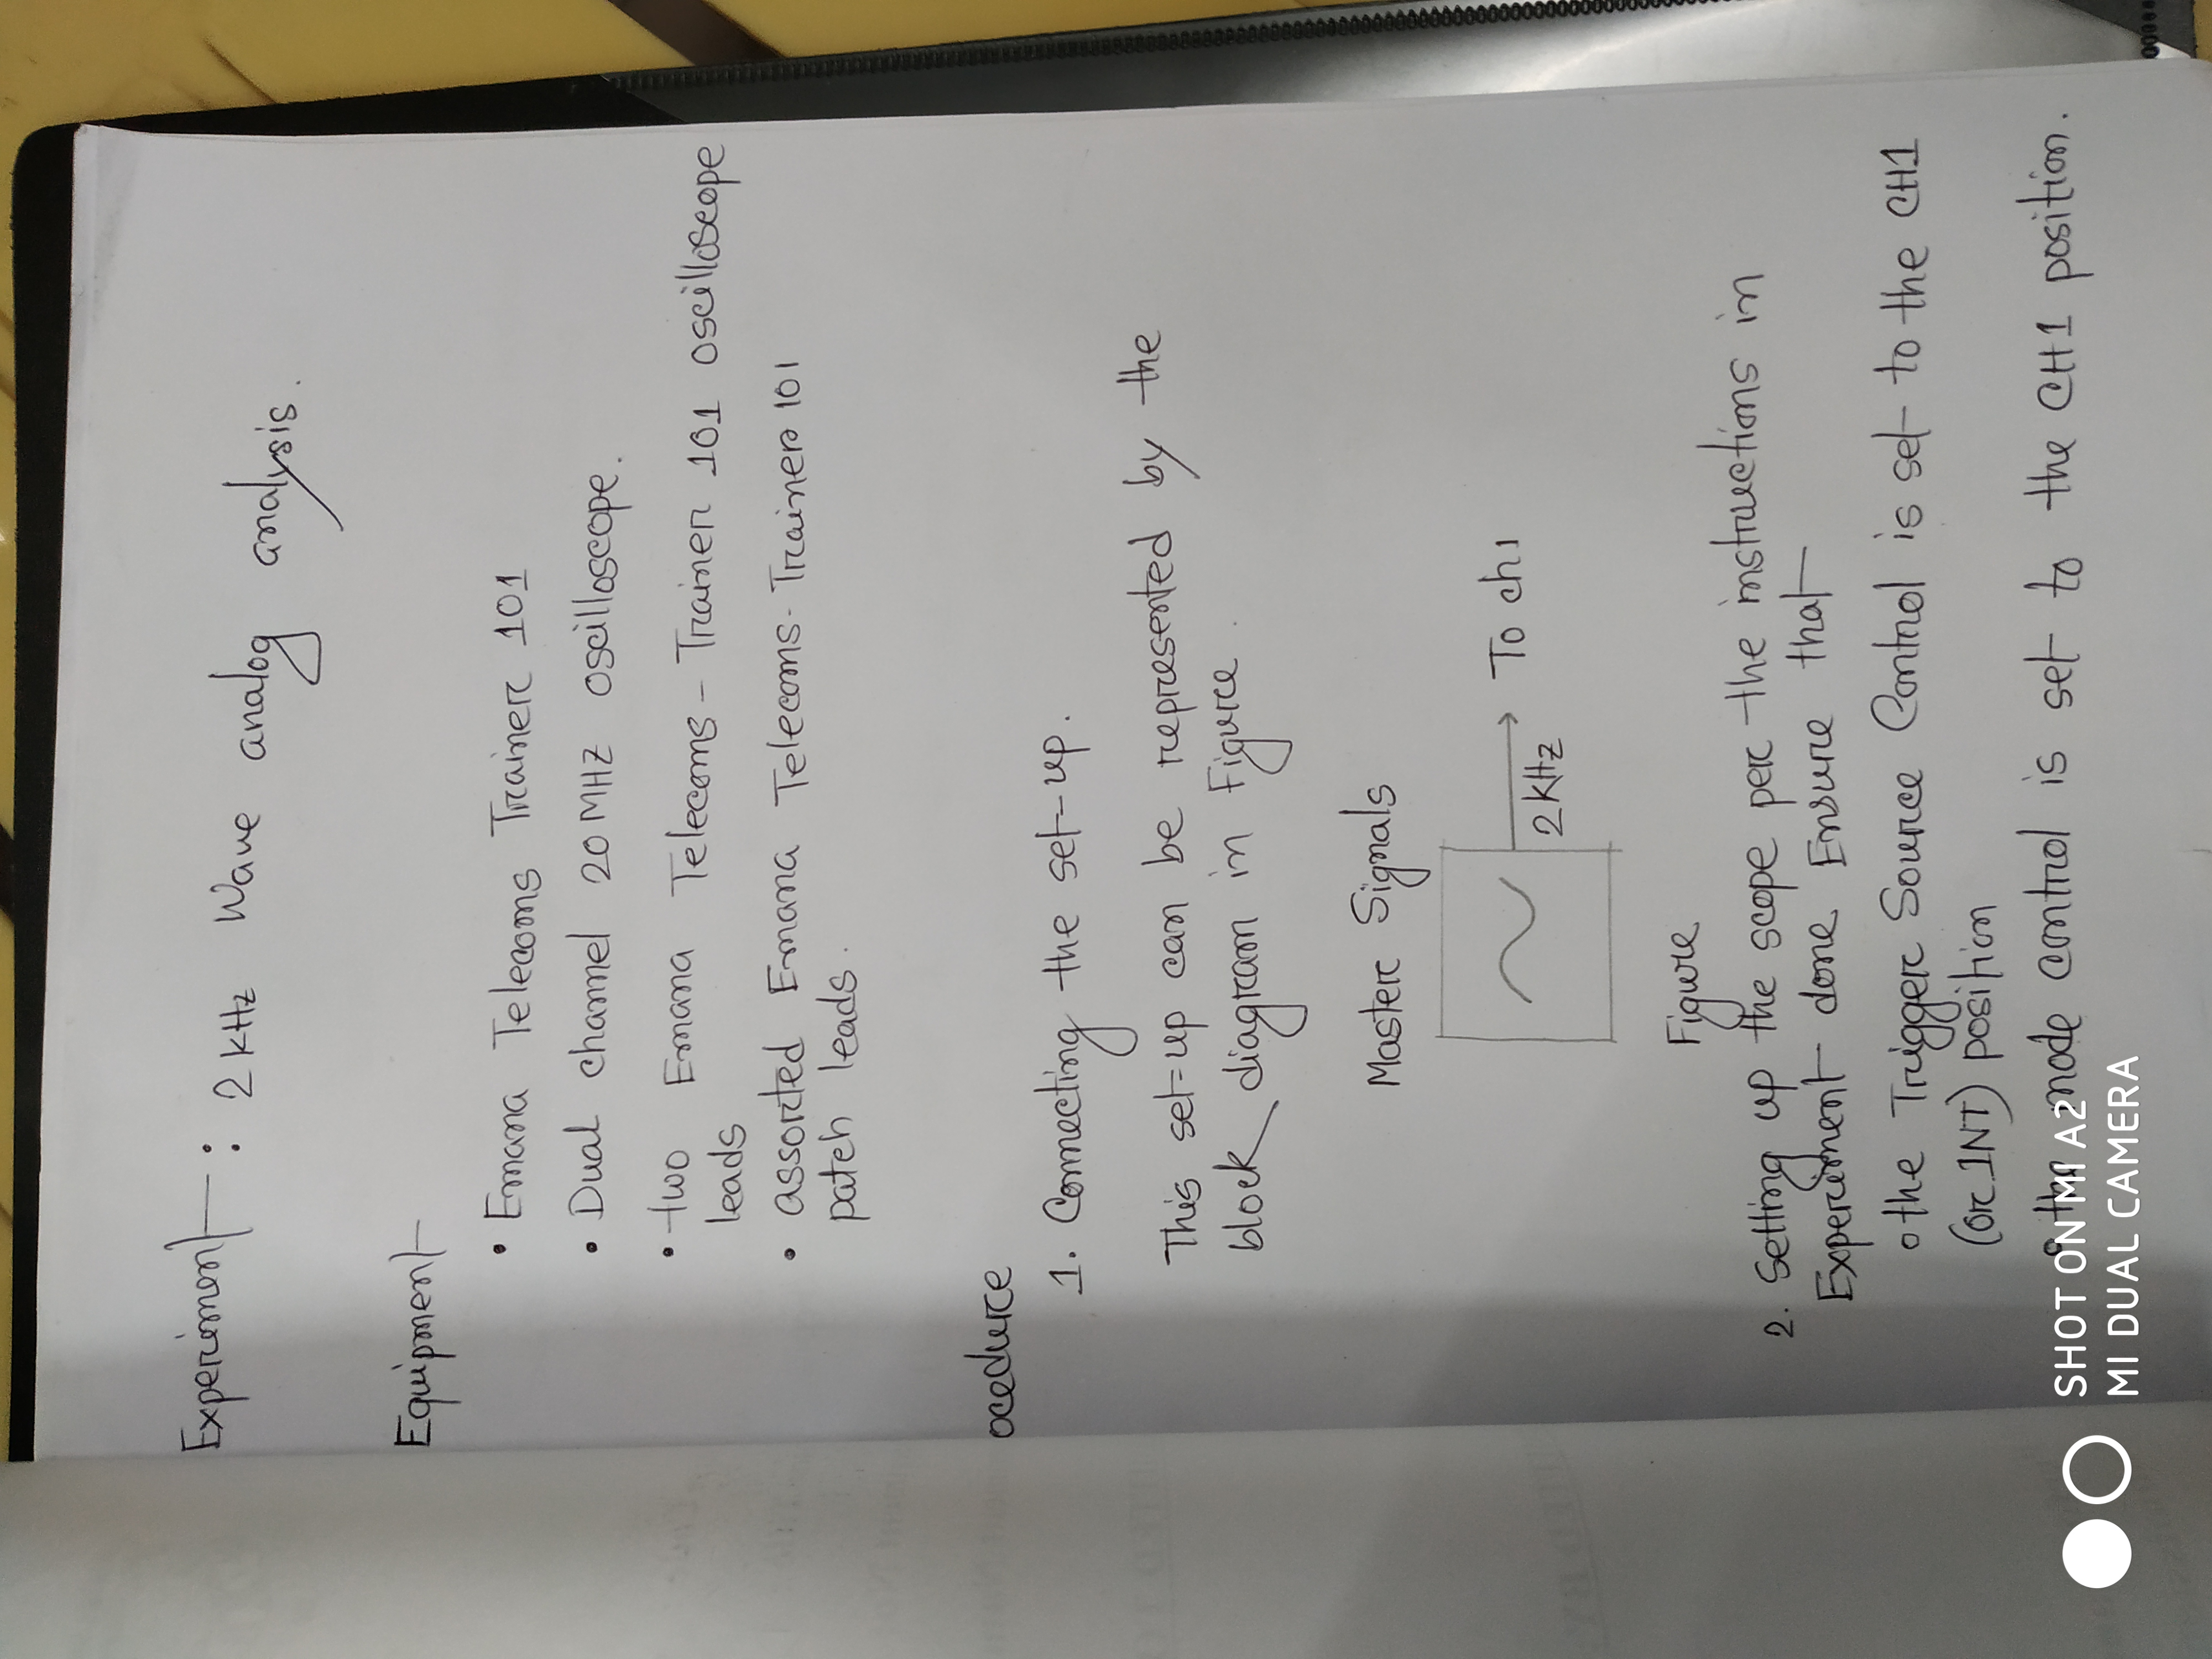 Experiment : 2 kHz Wave analog analysis.
Equipment
• Emana Telecoms Trainer 101
• Dual channel 20 MHZ oscilloscope.
• two Emana Telecoms - Trainer 101 oscilloscope
leads
• assorted Emana Telecoms - Trainer 101
patch leads.
ocedure
1. Connecting the set-up.
This set-up can be represented by the
block diagram in Figure.
Master Signals
2 kHz
To ch1
Figure
2. Setting up the scope per the instructions in
Experiment done Ensure that
o the Trigger Source Control is set to the CH1
(or INT) position
o the mode control is set to the CH1 position.
SHOT ON MI A2
MI DUAL CAMERA